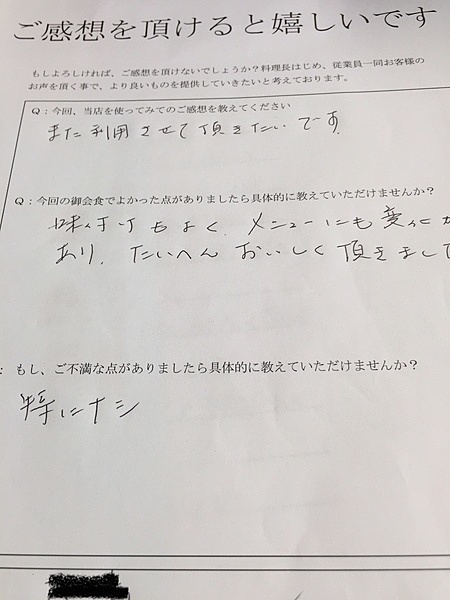 ご感想を頂けると嬉しいです
もしよろしければ、ご感想を頂けないでしょうか？料理長はじめ、従業員一同お客様の
お声を頂く事で、より良いものを提供していきたいと考えております。
Q：今回、当店を使ってみてのご感想を教えてください
また利用させて頂きたいです。
Q：今回の御会食でよかった点がありましたら具体的に教えていただけませんか？
味付けもよく、メニューにも変化が
あり、たいへんおいしく頂きまして
：もし、ご不満な点がありましたら具体的に教えていただけませんか？
特にナシ